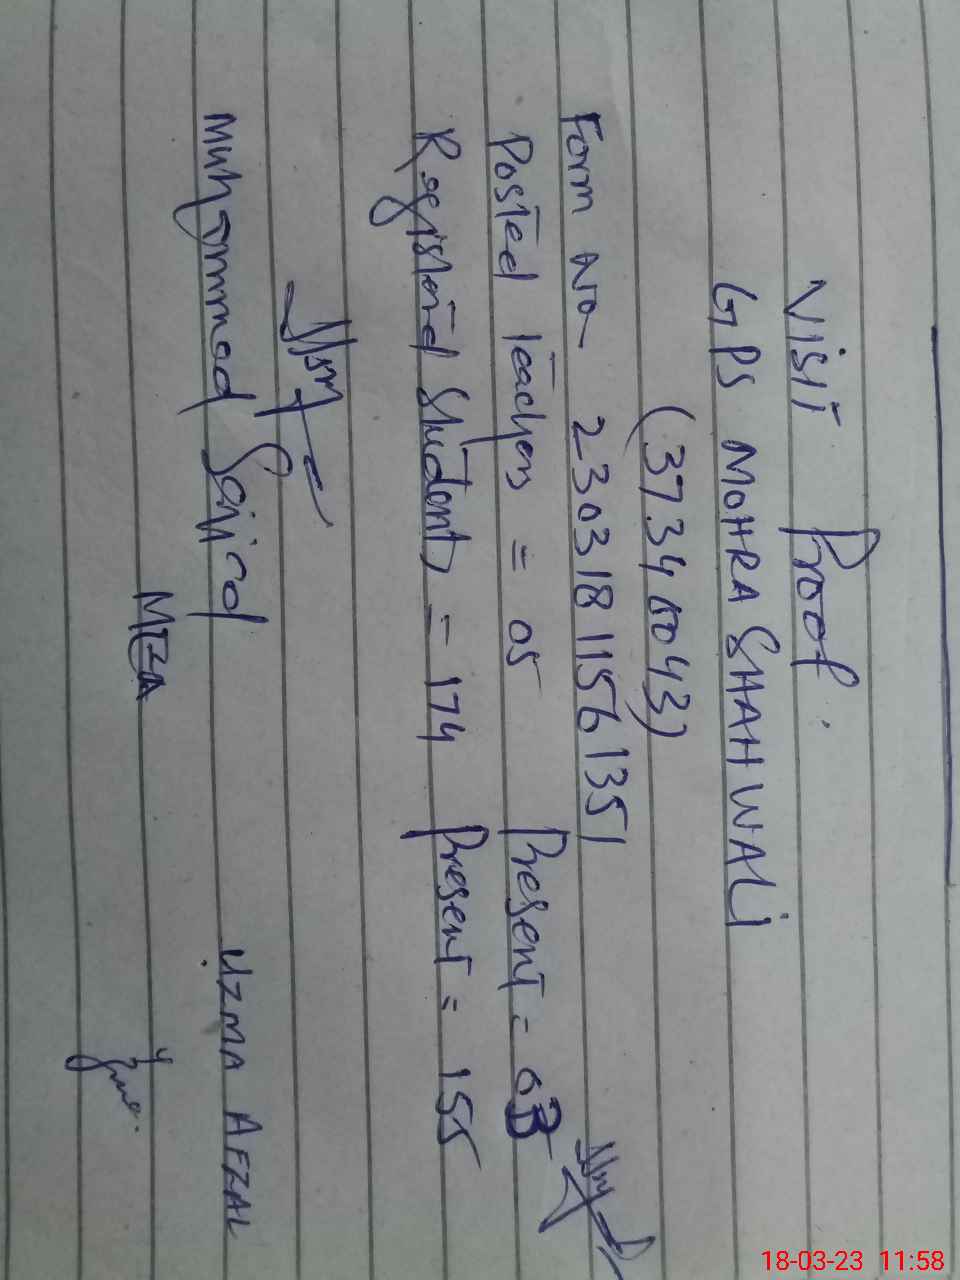 Visit Proof.
GPS MOHRA SHAHWALI
(37340043)
Form No 230318 1156 1351
Posted teachers = 05 Present = 03
Registerd Students = 174 Present = 155
Muhammad Sajid UZMA AFZAL
MEA
18-03-23 11:58